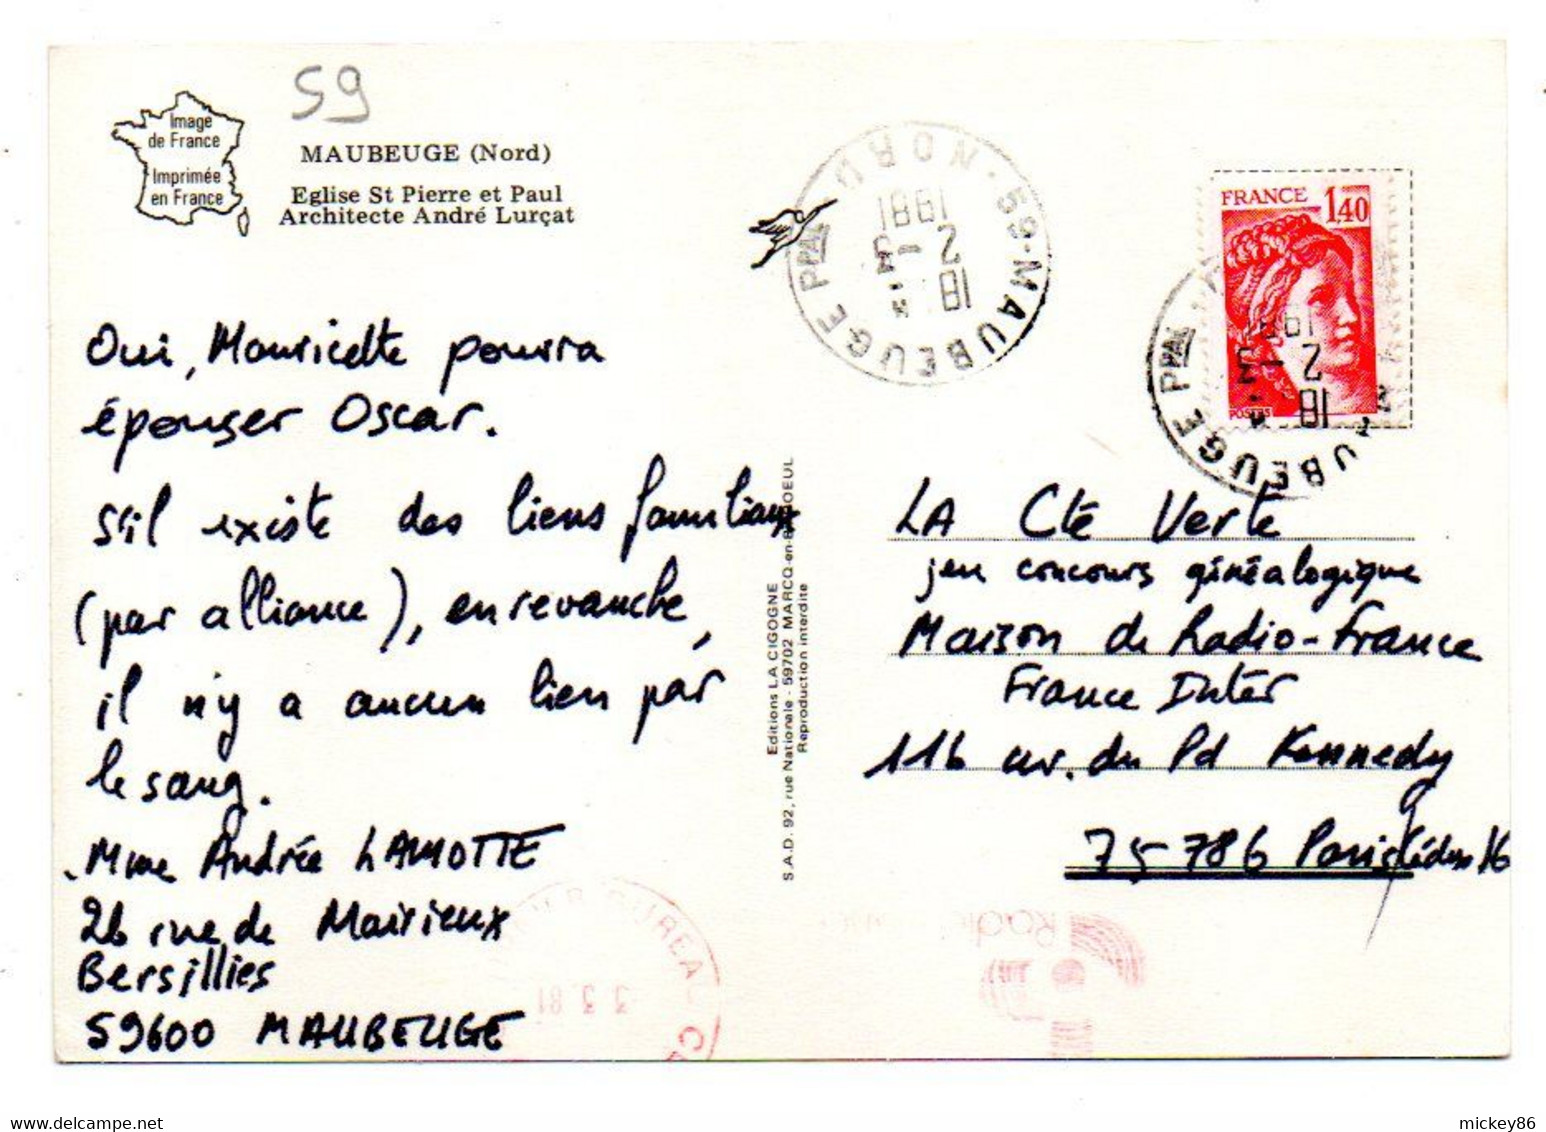 59
Image
de France
Imprimée
en France
MAUBEUGE (Nord)
Eglise St Pierre et Paul
Architecte André Lurçat
Oui, Mauricette pourra
épouser Oscar.
S'il existe des liens familiaux
(par alliance), en revanche,
il n'y a aucun lien par
le sang.
Mme Andrée LAMOTTE
26 rue de Mairieux
Bersillies
59600 MAUBEUGE
Editions LA CIGOGNE
S.A.D. 92, rue Nationale - 59702 MARCQ-en-BAROEUL
Reproduction interdite
59-MAUBEUGE PPAL NORD
18 H
2-3
1981
FRANCE 1,40
POSTES
MAUBEUGE PPAL
18 H
2-3
1981
LA Cté Verte
jeu concours généalogique
Maison de Radio-France
France Inter
116 av. du Pd Kennedy
75-786 Paris Cédex 16
BUREAU
3.3.81
Radio
mickey86